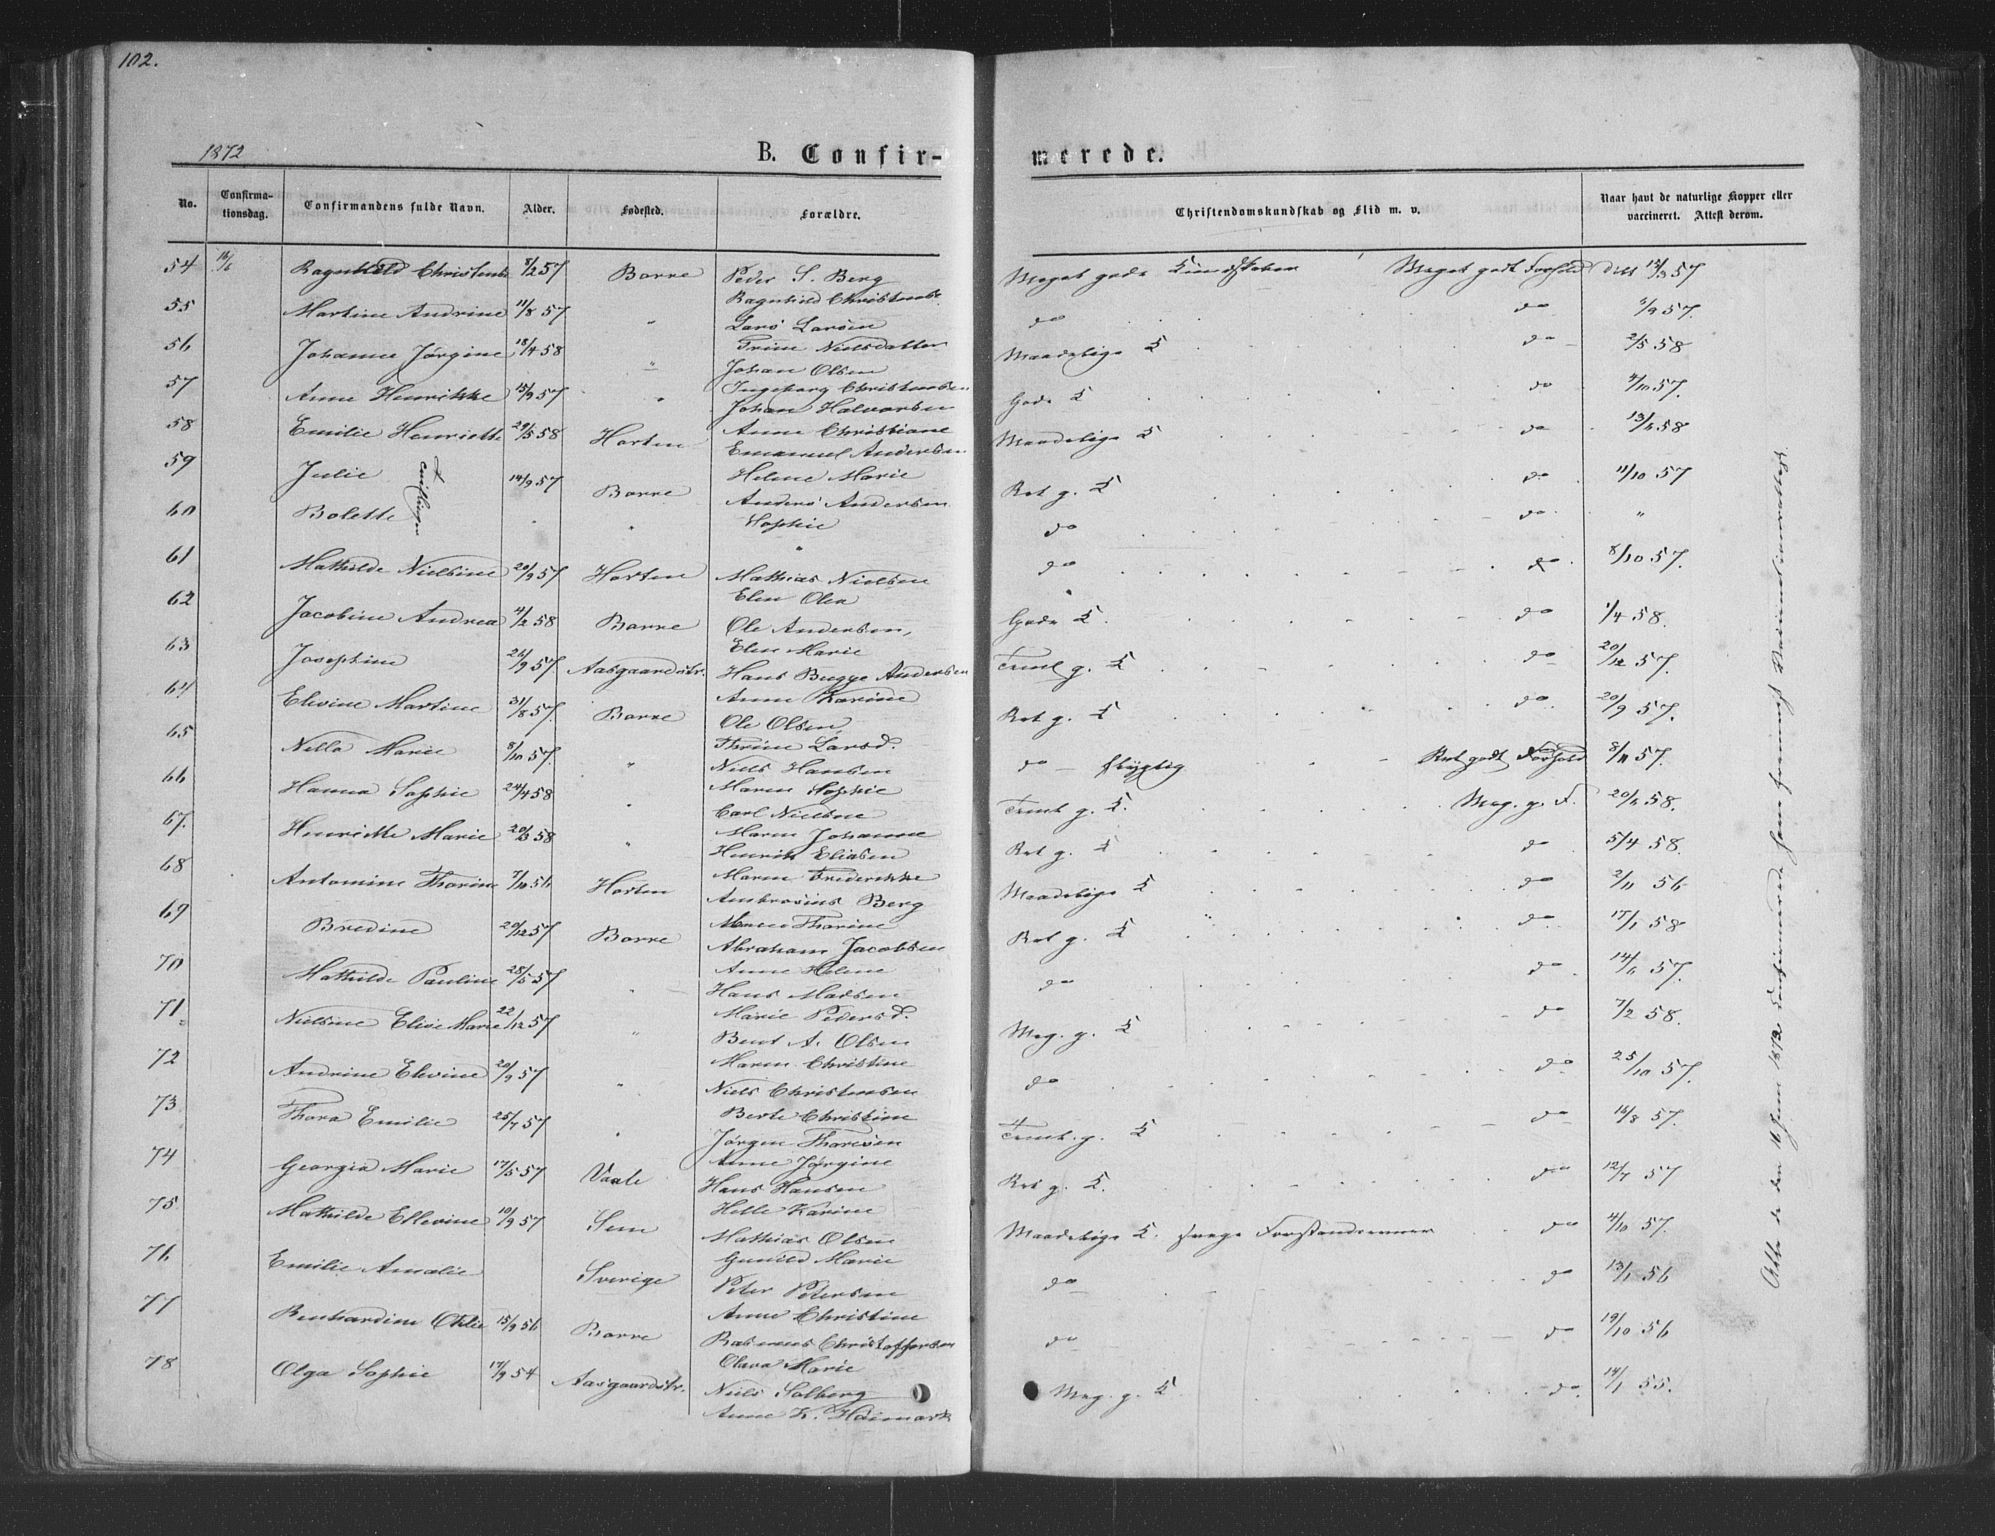 102.
1872
B. Confir-
merede.
No. Confirma-tionsdag. Confirmandens fulde Navn. Alder. Fødested. Forældre. Christendomskundskab og Flid m. v. Naar havt de naturlige Kopper eller vaccineret. Attest derom.
54 16/6 Ragnhild 8/2 57 Borre Peder S. Berg Meget gode Kundskaber Meget godt Forhold 12/3 57
Ragnhild
55 Martine Andrine 11/8 57 " Lars Larsen do do 57.
Trine Nielsdatter
56 Johanne Jørgine 18/4 58 " Johan Olsen Maadelige K do 2/5 58
Ingeborg Christensen
57 Anne Henrikke 15/9 57 " Johan Halvorsen Gode K do 4/10 57.
Anne Christiane
58 Emilie Henriette 29/5 58 Horten Emanuel Andersen Maadelige K do 13/6 58
Helene Marie
59 Julie Tvillinger 14/9 57 Borre Anders Andersen Ret g. K do 11/10 57
Sophie
60 Bolette " " " do do "
61 Mathilde Nielsine 20/9 57 Horten Mathias Nielsen do do 8/10 57.
Elen Olea
62 Jacobine Andrea 4/2 58 Borre Ole Andersen, Gode K. do 1/4 58.
Elen Marie
63 Josephine 26/9 57 Aasgaardstr. Hans Bugge Andersen g. K do 20/12 57.
Anne Karine
64 Elevine Martine 31/8 57. Borre Ole Olsen Ret g. K do 20/9 57.
Thrine Larsd.
65 Nella Marie 8/10 57. " Niels Hansen do flygtig Ret godt Forhold 8/11 57.
Maren Sophie
66 Hanna Sophie 24/4 58 " Carl Nielsen g. K. Meg. g. F. 20/6 58.
Maren Johanne
67. Henriette Marie 20/2 58 " Henrik Eliasen Ret g. K do 5/4 58.
Maren Frederikke
68 Antomine Thorine 7/10 56 Horten Ambrosius Berg Maadelige K do 2/11 56
Maren Thorine
69 Bredine 20/12 57 Borre Abraham Jacobsen Ret g. K do 17/1 58
Anne Helene
70 Mathilde Pauline 28/5 57 " Hans Madsen do do 14/6 57.
Marie Pedersd.
71. Nielsine Elise Marie 22/12 57 " Bent A. Olsen Meg. g. K do 7/2 58.
Maren Christine
72 Andrine Elevine 20/9 57 " Niels Christensen do do 25/10 57.
Berte Christine
73 Thora Emilie 25/7 57 " Jørgen Thoresen g. K do 16/8 57.
Anne Jørgine
74 Georgia Marie 17/5 57 Vaale Hans Hansen Ret g. K. do 12/7 57
Helle Karine
75 Mathilde Ellevine 10/9 57 Sem Mathias Olsen Maadelige K. svage Forstandsevner do 4/10 57.
Gunild Marie
76 Emilie Amalie Sverige Peter Petersen do do 13/1 56
Anne Christine
77 Othilie 15/9 56 Borre Rasmus Christoffersen do do 19/10 56
Olava Marie
78 Olga Sophie 17/9 54 Aasgaardstr. Niels Solberg Meg. g. K do. 14/1 55.
Anne K.
den 16 Juni 1872